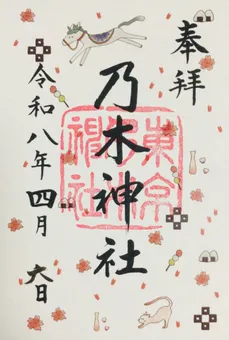 奉拝
乃木神社
東京
神社
令和八年四月六日